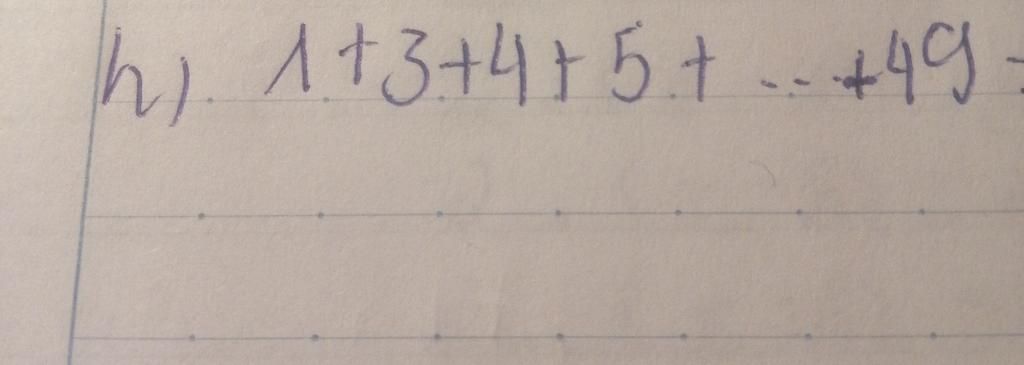 h) 1+3+4+5+...+49=